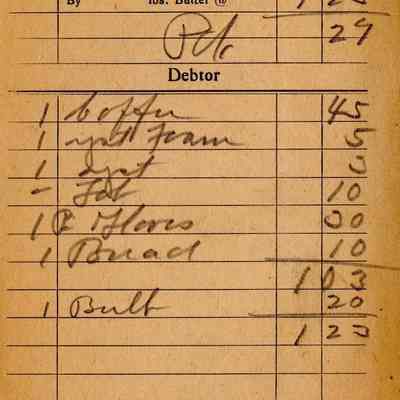 By lbs. Butter @
Pd. 29
Debtor
1 Coffee 45
1 yst Foam 5
1 yst 3
- 10
1 P Gloves 30
1 Bread 10
103
1 Bulb 20
123